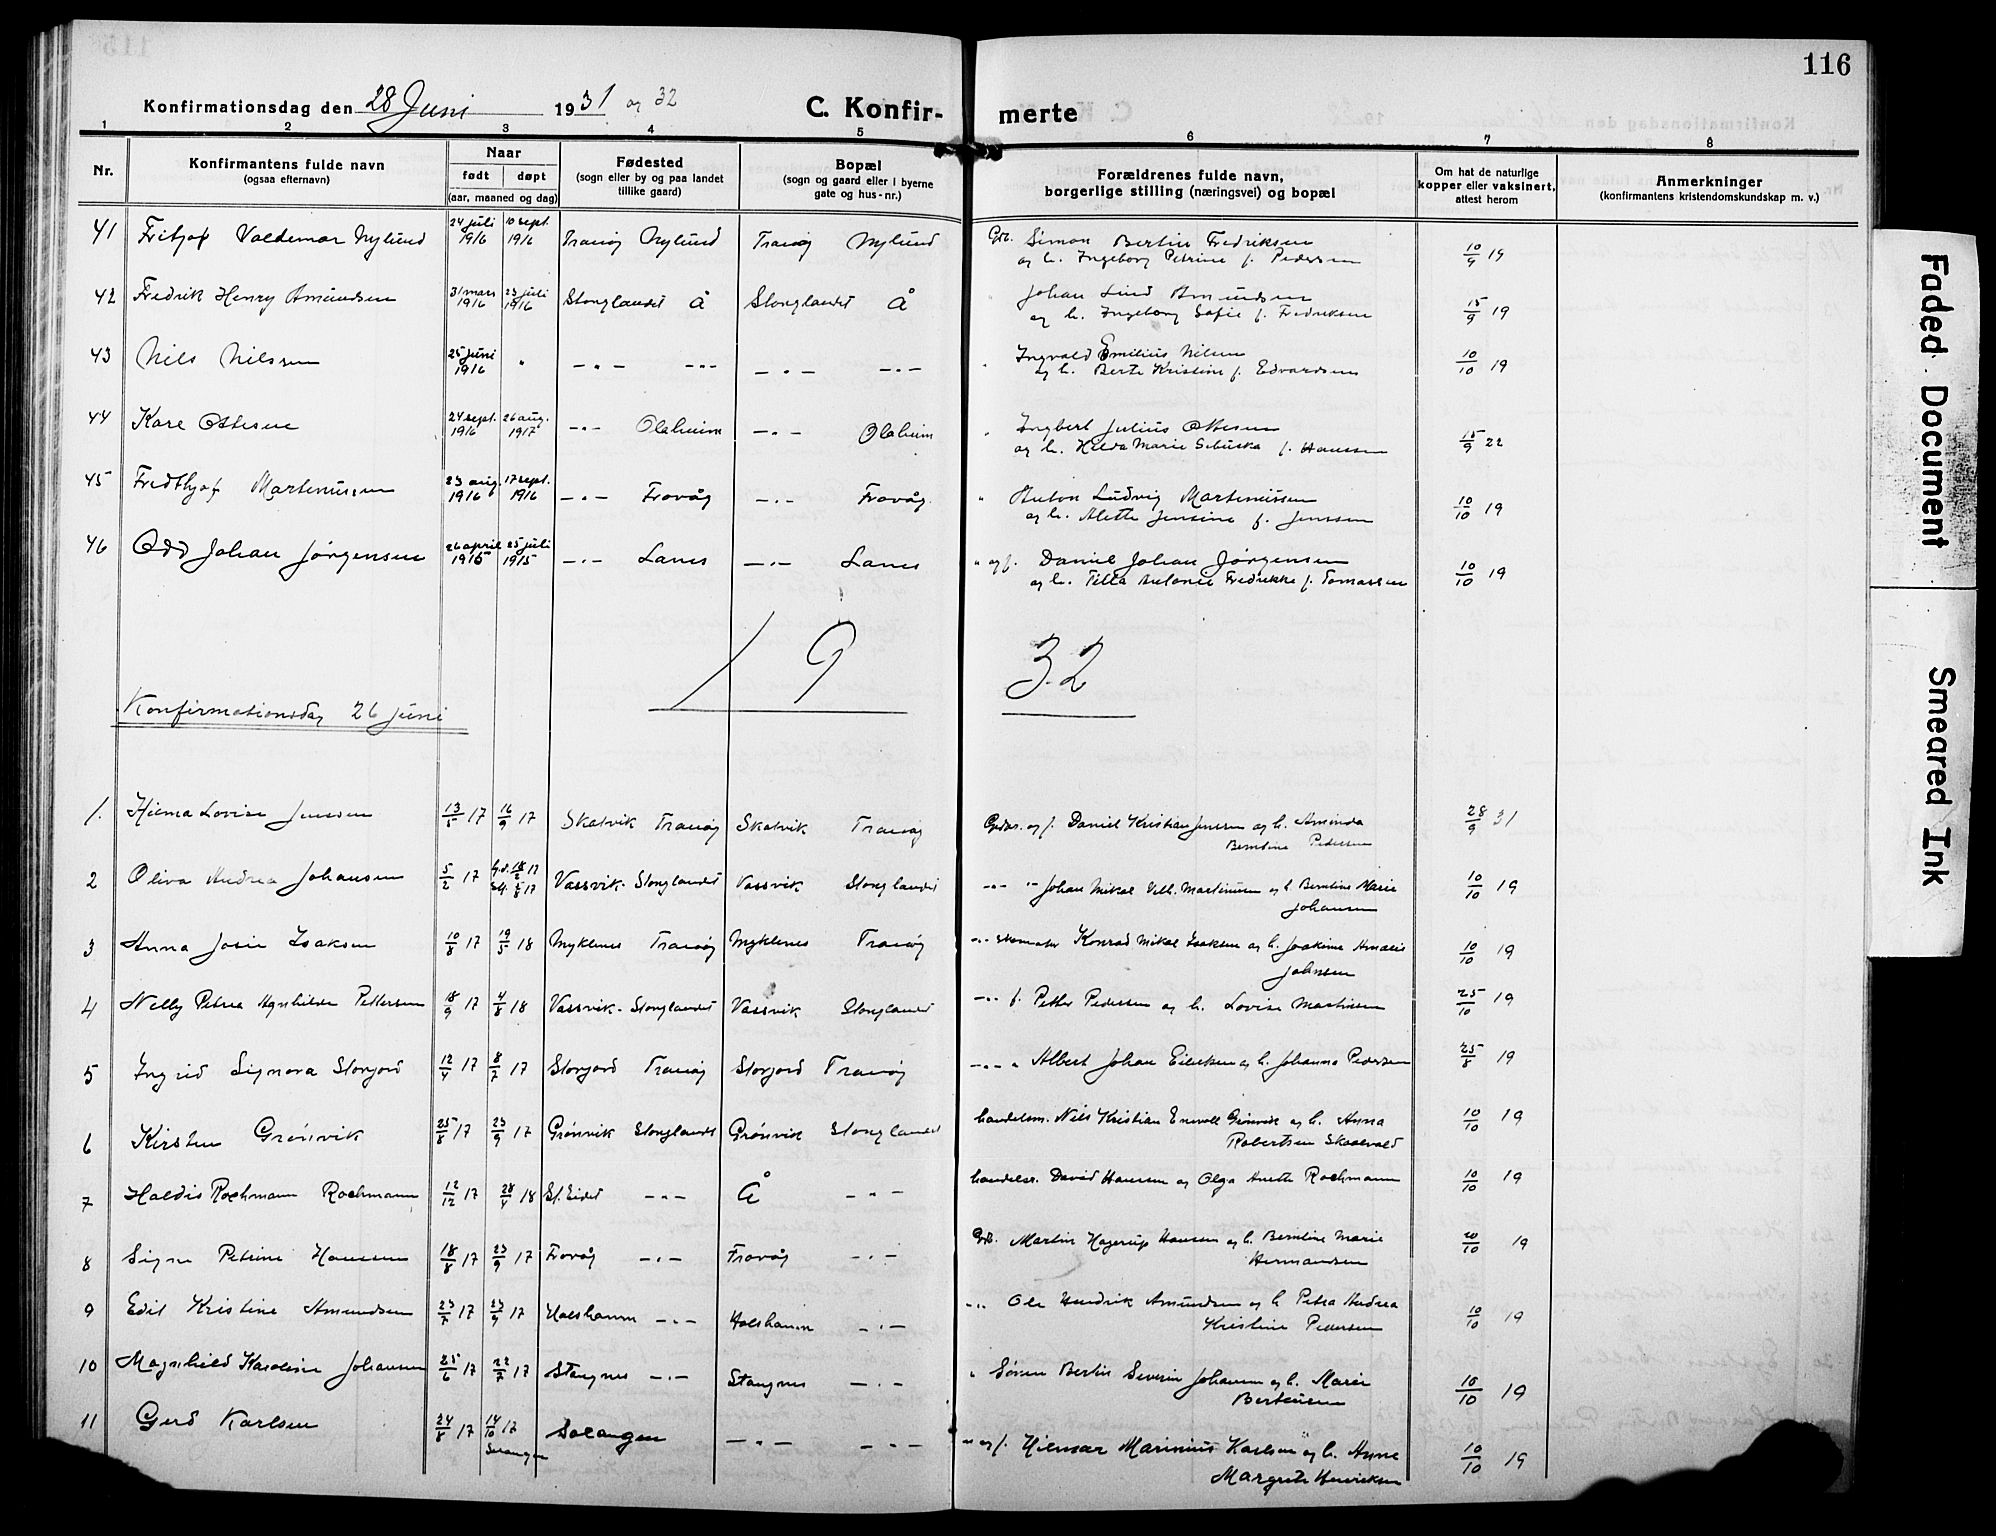 116
Konfirmationsdag den 28 Juni 1931 og 32
C. Konfirmerte
1 2 3 4 5 6 7 8
Nr.
Konfirmantens fulde navn
(ogsaa efternavn)
Naar
født døpt
(aar, maaned og dag)
Fødested
(sogn eller by og paa landet
tillike gaard)
Bopæl
(sogn og gaard eller i byerne
gate og hus-nr.)
Forældrenes fulde navn,
borgerlige stilling (næringsvei) og bopæl
Om hat de naturlige
kopper eller vaksinert,
attest herom
Anmerkninger
(konfirmantens kristendomskundskap m. v.)
41 Fritjof Valdemar Nylund 24 juli 1916 10 sept. 1916 Tranøy Nylund Tranøy Nylund Gdb. Simon Bertin Fredriksen 10/9 19
og h. Ingeborg Petrine f. Pedersen
42 Fredrik Henry Amundsen 31 mars 1916 23 juli 1916 Stonglandet Å Stonglandet Å " Johan Lind Amundsen 15/9 19
og h. Ingeborg Sofie f. Fredriksen
43 Nils Nilssen 25 juni 1916 " — " — — " — — " — — " — " Ingvald Emilius Nilsen 10/10 19
og h. Berte Kristine f. Edvardsen
44 Kåre Ottesen 24 sept. 1916 26 aug. 1917 — " — Olaheim — " — Olaheim " Ingbert Julius Ottesen 15/9 22
og h. Hilda Marie f. Hanssen
45 Fredthjof Martinussen 23 aug. 1916 17 sept. 1916 — " — Frovåg — " — Frovåg " Anton Ludvig Martinussen 10/10 19
og h. Alette Jensine f. Jenssen
46 Odd Johan Jørgensen 26 april 1915 25 juli 1915 — " — Lanes — " — Lanes " og f. Daniel Johan Jørgensen 10/10 19
og h. Tilla Antonie Fredrikke f. Tomassen
19 32
Konfirmationsdag 26 juni
1. Hilma Lovise Jenssen 13/5 17 16/9 17 Skatvik Tranøy Skatvik Tranøy og f. Daniel Kristian Jenssen og h. Aminda 28/9 31
Berntine Pedersen
2 Oliva Andrea Johansen 5/2 17 Vassvik - Stonglandet Vassvik Stonglandet — " — Johan Mikal Vilh. Martinusen og h. Berntine Marie 10/10 19
Johansen
3 Anna Josie Isaksen 10/8 17 19/5 18 Myklenes Tranøy Myklenes Tranøy — " — Konrad Mikal Isaksen og h. Joakime Amalie 10/10 19
Johnsen
4 Nelly Petrea Agnhilde Pettersen 18/9 17 4/8 18 Vassvik - Stonglandet Vassvik Stonglandet — " — f. Petter Pedersen og h. Lovise Martinsen 25/10 19
5 Ingrid Signora Storjord 12/4 17 8/7 17 Storjord Tranøy Storjord Tranøy — " — " Albert Johan Eilertsen og h. Johanna Pedersen 25/8 19
6 Kirsten Grønvik 25/8 17 23/9 17 Grønvik Stonglandet Grønvik Stonglandet handelsm. Nils Kristian Grønvik og h. Anna 10/10 19
Robertsen
7 Haldis Rochmann Rochmann 12/12 17 28/4 18 St. Eidet — " — Å — " — David Hansen og Olga Anette Rochmann 10/10 19
8 Signe Petrine Hansen 18/8 17 23/9 17 Frovåg — " — Frovåg — " — Gdb. Martin Hagerup Hansen og h. Berntine Marie 10/10 19
Hermansen
9 Edit Kristine Amundsen 23/7 17 23/9 17 Holshamn — " — Holshamn — " — — " — Ole Hendrik Amundsen og h. Petra Andrea 10/10 19
Kristine Pedersen
10 Magnhild Karoline Johansen 25/6 17 22/7 17 Stangnes — " — Stangnes — " — " Søren Bertin Severin Johansen og h. Marie 10/10 19
Berteusen
11 Gerd Karlsen 24/8 17 14/10 17 Salangen — " — — " — " og f. Hilmar Marinius Karlsen og h. Anna 10/10 19
Salangen Margrete Henriksen
Faded Document
Smeared Ink